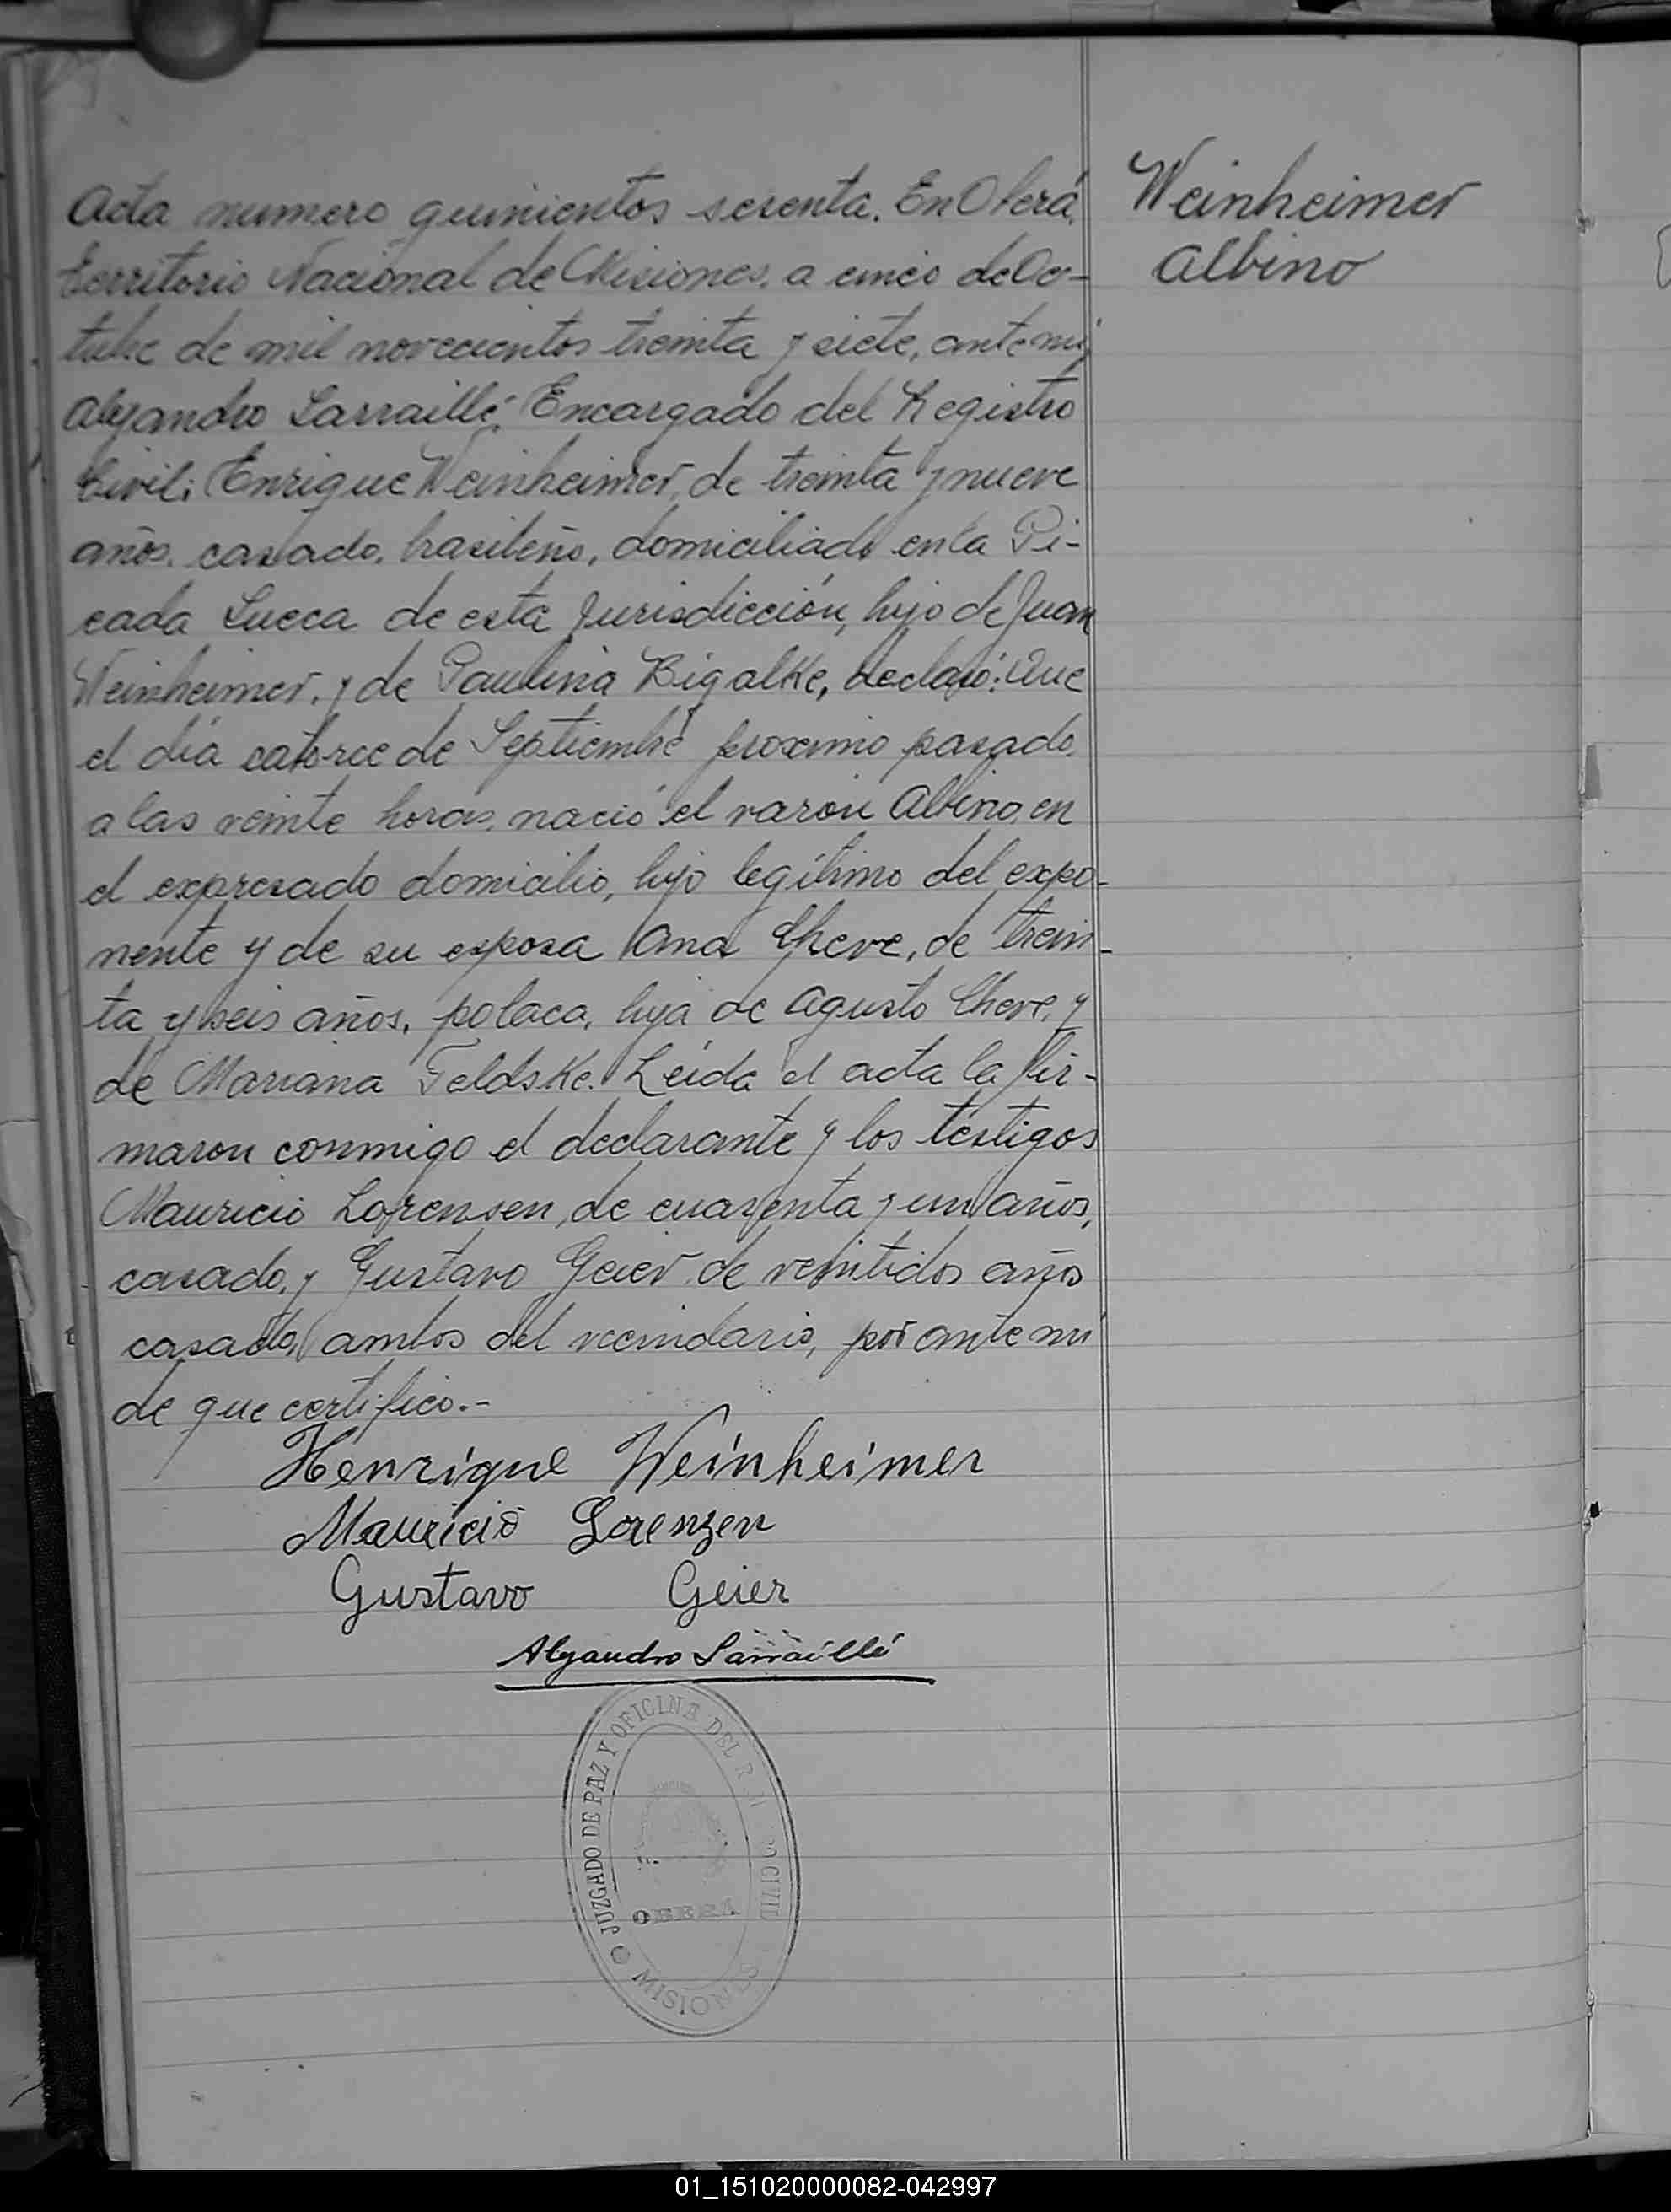 Acta numero quinientos sesenta. En Oberá,
territorio Nacional de Misiones, a cinco de Oc-
tubre de mil novecientos treinta y siete, ante mi,
Alejandro Larraillé, Encargado del Registro
Civil; Enrique Weinheimer, de treinta y nueve
años, casado, brasileño, domiciliado en la Pi-
cada Sueca de esta Jurisdicción, hijo de Juan
Weinheimer, y de Paulina Bigalke, declaró: Que
el día catorce de Septiembre proximo pasado,
a las veinte horas, nació el varon Albino, en
el expresado domicilio, hijo legítimo del expo-
nente y de su esposa Ana Cheve, de trein-
ta y seis años, polaca, hija de Agusto Cheve, y
de Mariana Feldske. Leida el acta la fir-
maron conmigo el declarante y los testigos
Mauricio Lorensen, de cuarenta y un años,
casado, y Gustavo Geier, de veintidos años
casado, ambos del vecindario, por ante mi
de que certifico.-
Henrique Weinheimer
Mauricio Lorenzen
Gustavo Geier
Alejandro Larraillé
JUZGADO DE PAZ Y OFICINA DEL R CIVIL
OBERA
MISIONES
Weinheimer
Albino
01_151020000082-042997